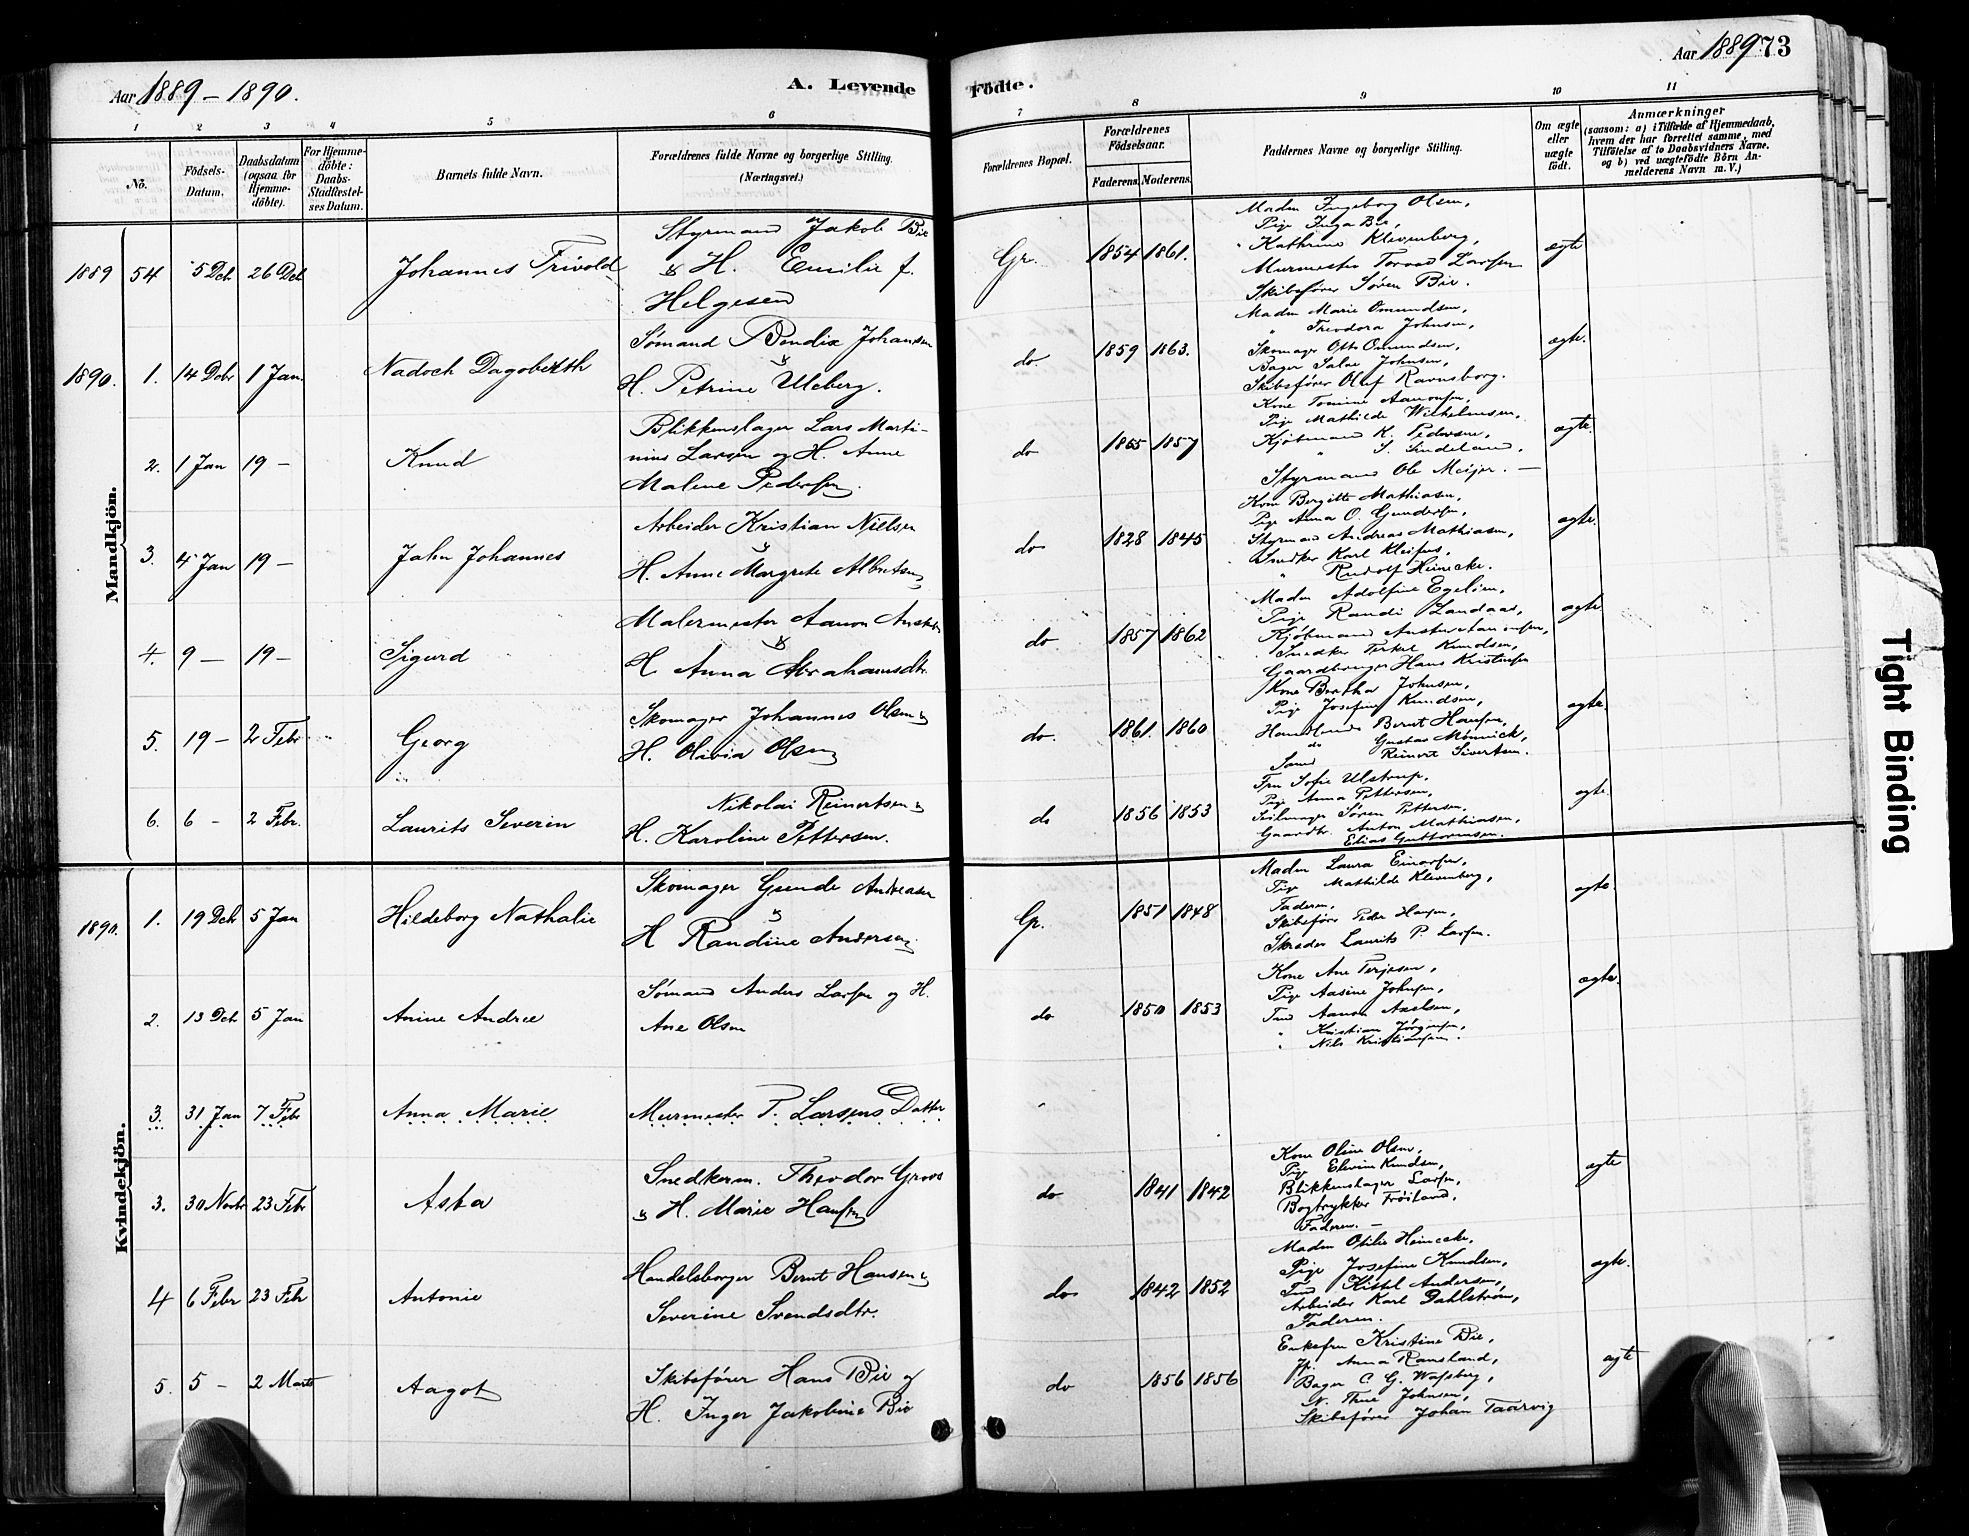 Aar 1889 - 1890.
A. Levende
Födte.
Aar 1889
73
1 2 3 4 5 6 7 8 9 10 11
No.
Födsels-
Datum.
Daabsdatum
(ogsaa for
Hjemme-
döbte).
For Hjemme-
döbte:
Daabs-
Stadfæstel-
ses Datum.
Barnets fulde Navn.
Forældrenes fulde Navne og borgerlige Stilling.
(Næringsvei.)
Forældrenes Bopæl.
Forældrenes
Födselsaar.
Faderens. Moderens.
Faddernes Navne og borgerlige Stilling.
Om ægte
eller
uægte
födt.
Anmærkninger
(saasom: a) i Tilfælde af Hjemmedaab,
hvem der har forrettet samme, med
Tilföielse af to Daabsvidners Navne,
og b) ved uægtefödte Börn An-
melderens Navn m. V.)
Mandkjön.
1889 54 5 Deb 26 Deb Johannes Trivold
Styrmand Jakob Bie
& H. Emilie f.
Helgesen
Gr. 1854 1861.
Madm Ingeborg Olsen,
Pige Inga Bie,
" Kathrine Klevenberg,
Murmester Larsen
Skibsfører Søren Bie.
ægte
1890. 1. 14 Debr 1 Jan. Nadoch Dagoberth
Sømand Bendix Johansen
&
H. Petrine Uleberg.
do. 1859 1863.
Madm Marie Omundsen,
" Theodora Johnsen,
Skomager Otto Omundsen,
Bager Salve Johnsen,
Skibsfører Oluf Ravnsborg.
ægte.
2. 1 Jan 19 - Knud
Blikkenslager Lars Marti-
nius Larsen og H. Anne
Malene Pedersen
do 1865 1857
Kone Tomine Aanonsen,
Pige Mathilde Wilhelmsen,
Kjøbmand K. Pedersen,
" S. Sindeland,
Styrmand Ole Meijer. -
ægte.
3. 4 Jan 19 - Jahn Johannes
Arbeider Kristian Nielsen
&
H. Anne Margrete Albretsen
do 1828 1845
Kone Bergitte Mathiasen,
Pige Anna O. Gundersen,
Styrmand Andreas Mathiasen,
Snedker Karl
" Rudolf Heinecke.
ægte.
4. 9 - 19 - Sigurd
Malermester Aanon
&
H. Anna Abrahamsdtr.
do 1857 1862
Madm Adolfine Egelien,
Pige Randi Landaas,
Kjøbmand Aanonsen,
Snedker Terkel Knudsen,
Gaardbruger Hans Kristensen
ægte
5. 19 - 2 Febr Georg
Skomager Johannes Olsen &
H. Olivia Olsen
do. 1861. 1860
Kone Bertha Johnsen,
Pige Josefine Knudsen,
Bernt Hansen,
do Gustav Mønnick,
Reinert Sivertsen.
ægte.
6. 6 - 2 Febr. Laurits Severin
Nikolai Reinertsen &
H. Karoline Pettersen.
do 1856 1853
Fru Sofie Ulstrup,
Pige Anna Pettersen,
Seilmager Søren Pettersen,
Gaardbr. Anton Mathiasen,
Elias Guttormsen.
ægte.
Kvindekjön.
1890. 1. 19 Deb 5 Jan Hildeborg Nathalie
Skomager Gunde Andreasen
&
H Randine Andersen
Gr. 1851 1848
Madm Laura Einarsen,
Pige Mathilde Klevenberg,
Faderen,
Skibsfører Peder Hansen,
Skræder Laurits P. Larsen.
ægte
2. 13 Deb 5 Jan Anine Andree
Sømand Anders Larsen og H.
Ane Olsen
do 1850 1853
Kone Ane Terjesen,
Pige Aasine Johnsen,
Tmd Aanon Axelsen,
" Kristian Jørgensen,
" Nils Kristiansen.
ægte.
3. 31 Jan 7 Febr Anna Marie
Murmester T. Larsens Datter
3. 30 Novbr 23 Febr Asta
Snedkerm. Theodor Groos
& H. Marie Hansen
do 1841 1842
Kone Oline Olsen,
Pige Elevine Knudsen,
Blikkenslager Larsen,
Bogtrykker Frøiland,
Faderen. -
ægte
4 6 Febr 23 Febr Antonie
Handelsborger Bernt Hansen &
Severine Svendsdtr.
do 1842 1852
Madm Otilie Heinecke,
Pige Josefine Knudsen,
Tmd Kittel Andersen,
Arbeider Karl Dahlstrøm,
Faderen.
ægte.
5. 5 - 2 Marts Aagot
Skibsfører Hans Bie og
H. Inger Jakobine Bie
do 1856 1856
Enkefru Kristine Bie,
Anna Ramsland,
Bager C. G. Wafsberg,
N. Thue Johnsen,
Skibsfører Johan Taarvig
ægte
Tight Binding